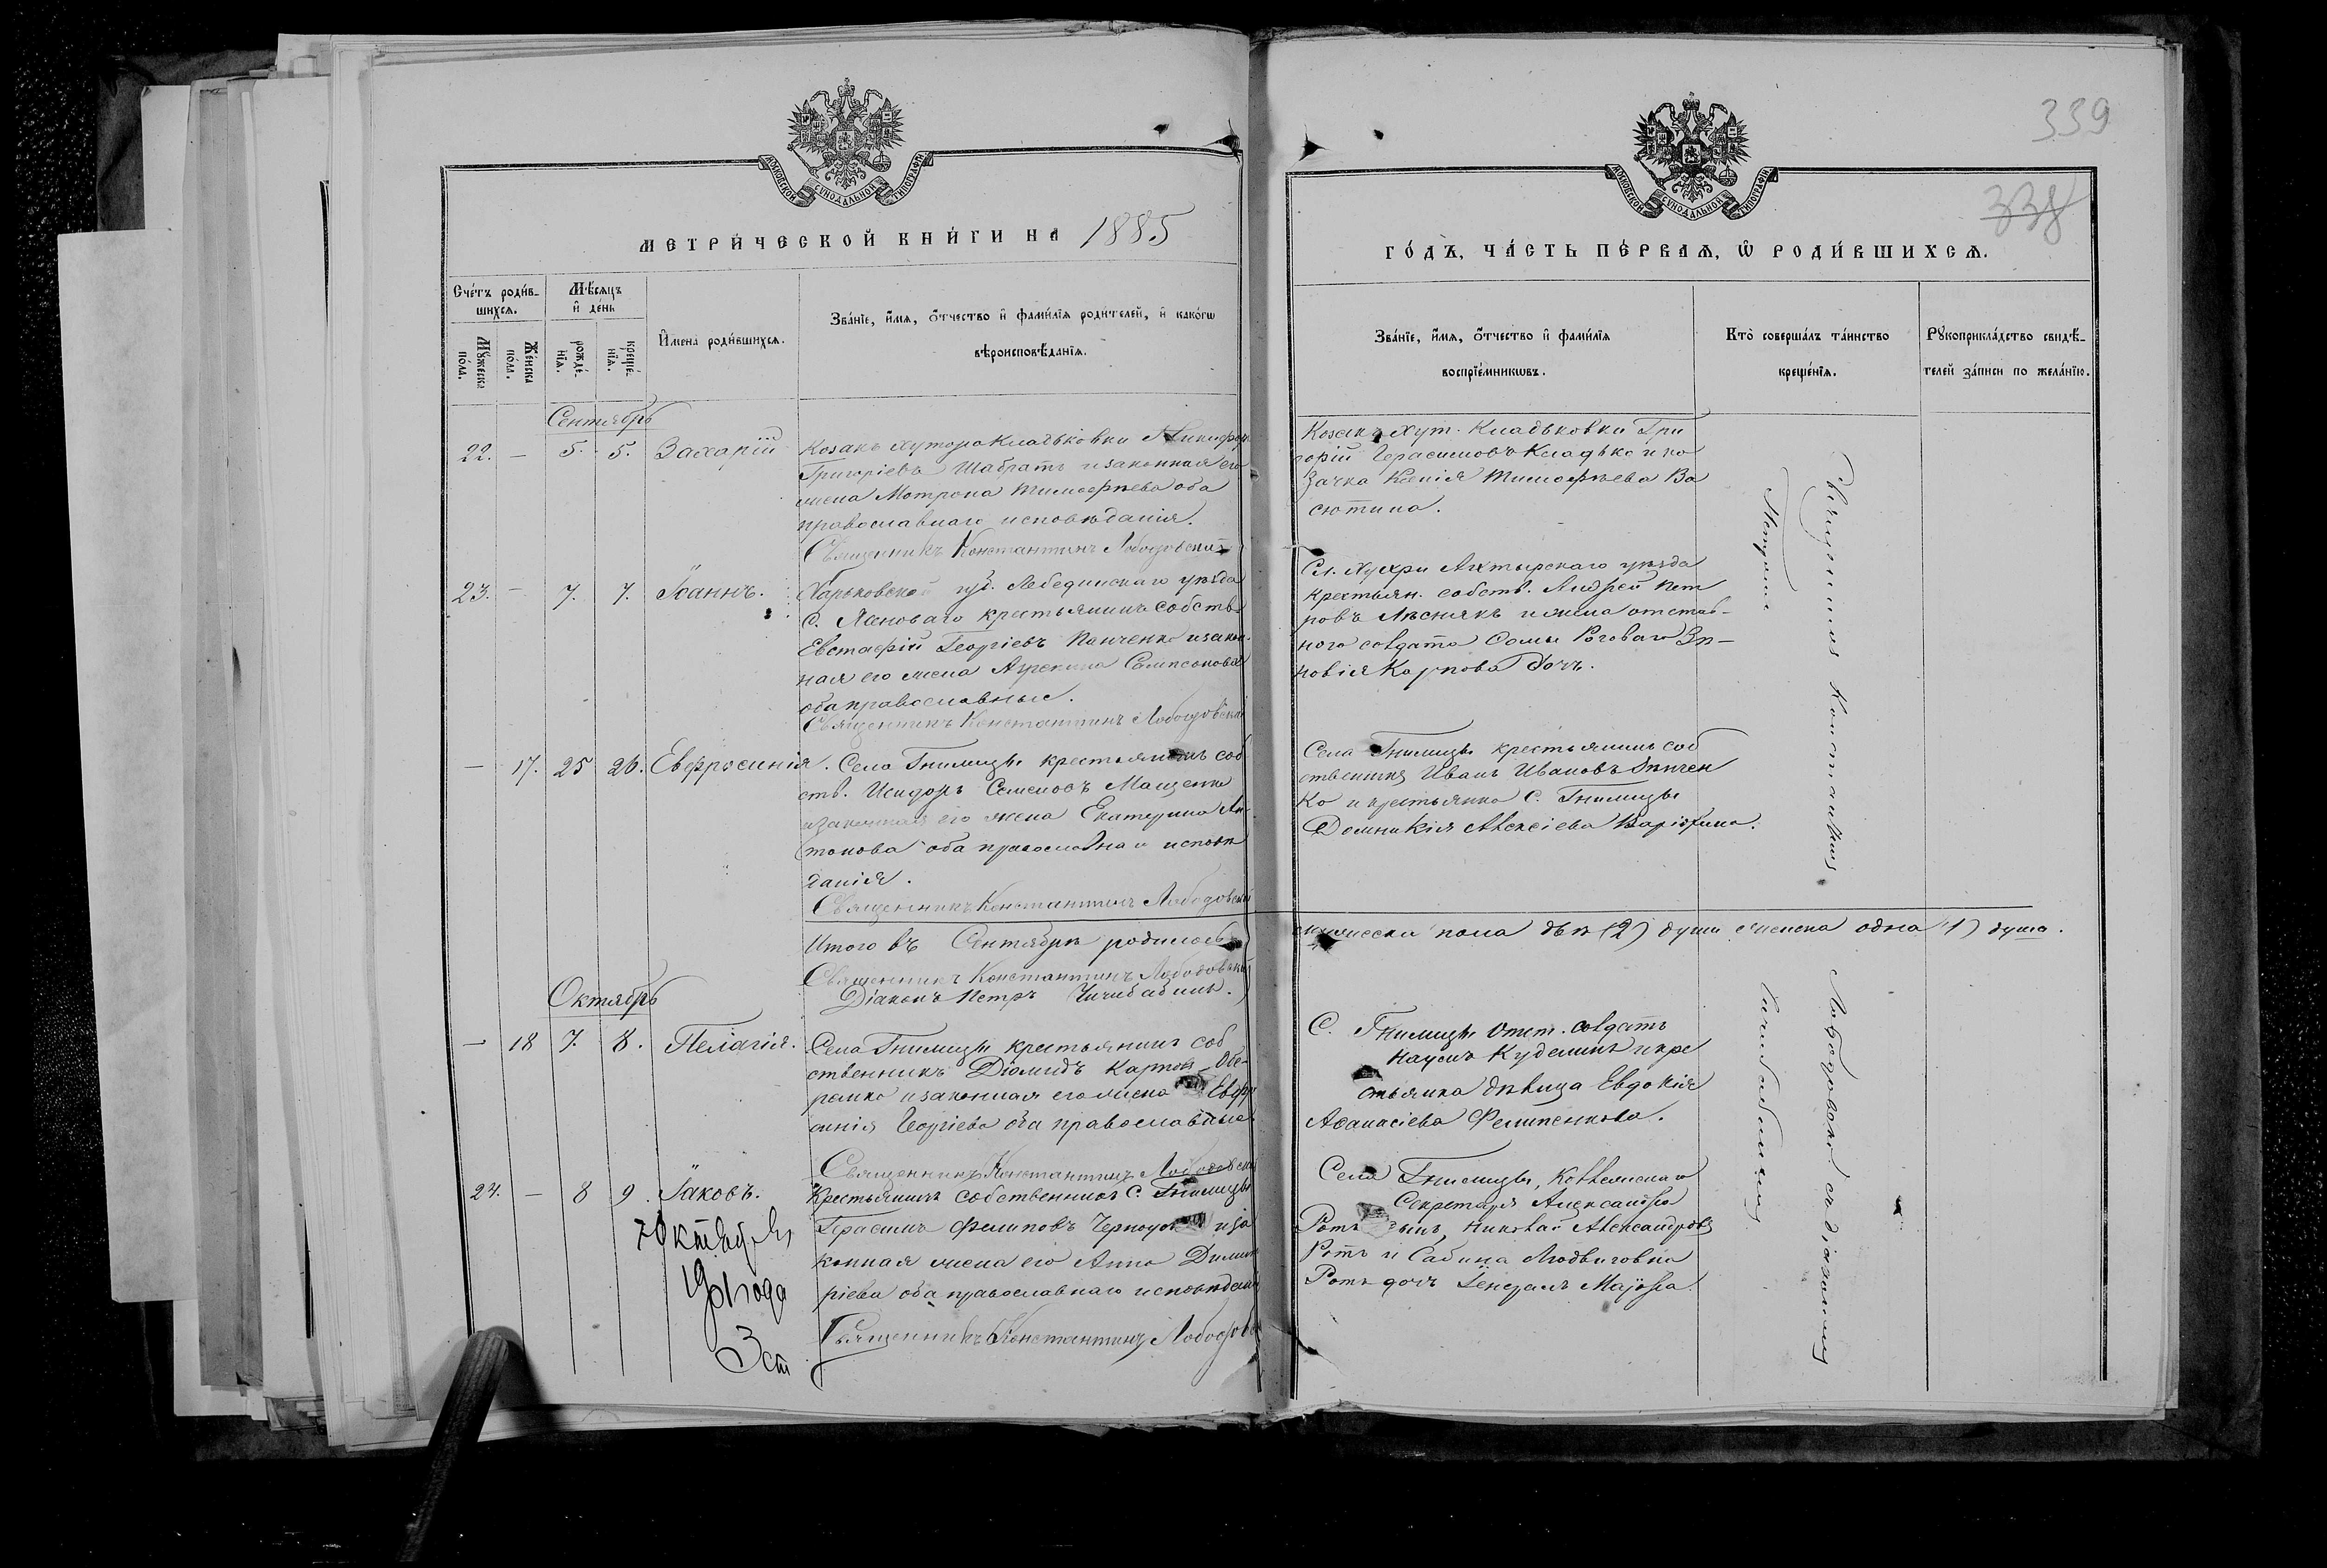 339
338
МОСКОВСКОЙ СѴНОДАЛЬНОЙ ТИПОГРАФІИ
МОСКОВСКОЙ СѴНОДАЛЬНОЙ ТИПОГРАФІИ
МЕТРИ́ЧЕСКОЙ КНИ́ГИ НА 1885
ГО́ДЪ, ЧА́СТЬ ПЕ́РВАЯ, Ѡ РОДИ́ВШИХСЯ.
Сче́тъ роди́в-
шихся.
Мꙋжеска по́ла.
Же́нска по́ла.
Мѣ́сяцъ и де́нь
рожде́-
нїя.
креще́-
нїя.
Имена̀ роди́вшихся.
Зва́нїе, и́мя, о́тчество и фами́лїя роди́телей, и како́гѡ
вѣроисповѣ́данїя.
Зва́нїе, и́мя, о́тчество и фами́лїя
воспрїе́мникѡвъ.
Кто̀ соверша́лъ та́инство
креще́нїя.
Рꙋкоприкла́дство свидѣ́-
телей за́писи по жела́нїю.
Сентябрь
22. — 5. 5. Захарій
Козакъ хутора Кладьковки Никифор
Григоріевъ Шабратъ и законная его
жена Мотрона Тимофѣева оба
православнаго исповѣданія.
Священникъ Константинъ Лободовскій
Козакъ хут. Кладьковки Гри
горій Герасимовъ Кладько и ко
зачка Ксенія Тимофѣева Ва
сютина.
23. — 7. 7. Іоаннъ.
Харьковской губ. Лебединскаго уѣзда
с. Ясеноваго крестьянинъ собств.
Евстафій Георгіевъ Панченко и закон-
ная его жена Агрепина Сампсонова
оба православные.
Священникъ Константинъ Лободовскій
Сл. Хухри Ахтырскаго уѣзда
крестьян. собств. Андрей Пет
ровъ Лѣснякъ и жена отстав-
ного солдата Сомы Роговаго Зи-
новія Карпова дочь.
— 17. 25 26. Евфросинія.
Села Гнилицы крестьянинъ соб
ств. Исидоръ Семеновъ Мащенко
и законная его жена Екатерина Ан
тонова оба православнаго исповѣ
данія.
Священникъ Константинъ Лободовскій
Села Гнилицы крестьянинъ соб
ственникъ Иванъ Ивановъ
ко и крестьянка С. Гнилицы
Домникія Алексіева
Итого въ Сентябрѣ родилось мужеска пола двѣ (2) души женска одна (1) душа.
Священникъ Константинъ Лободовскій
Діаконъ Петръ Чичибабинъ.
Октябрь
— 18 7. 8. Пелагія.
Села Гнилицы крестьянинъ соб
ственникъ Діомидъ Карповъ
ренко и законная его жена Евфр
синія Георгіева оба православные
Священникъ Константинъ Лободовскій
С. Гнилицы Отст. солдатъ
Наумъ Куделинъ и кре
стьянка дѣвица Евдокія
Аѳанасіева Филипенкова.
24. — 8 9. Іаковъ.
7 Октября
Зст
Крестьянинъ собственникъ С. Гнилицы
Герасимъ Филиповъ и за
конная жена его Анна Димит
ріева оба православнаго исповѣданія
Священникъ Константинъ Лободовскій
Села Гнилицы, Коллежскаго
Секретаря Александра
Ротъ сынъ, Николай Александровъ
Ротъ и Сабина Людвиговна
Ротъ дочь Генералъ Маіора.
Священникъ Константинъ Лободовскій съ діакономъ
Петромъ Чичибабинымъ